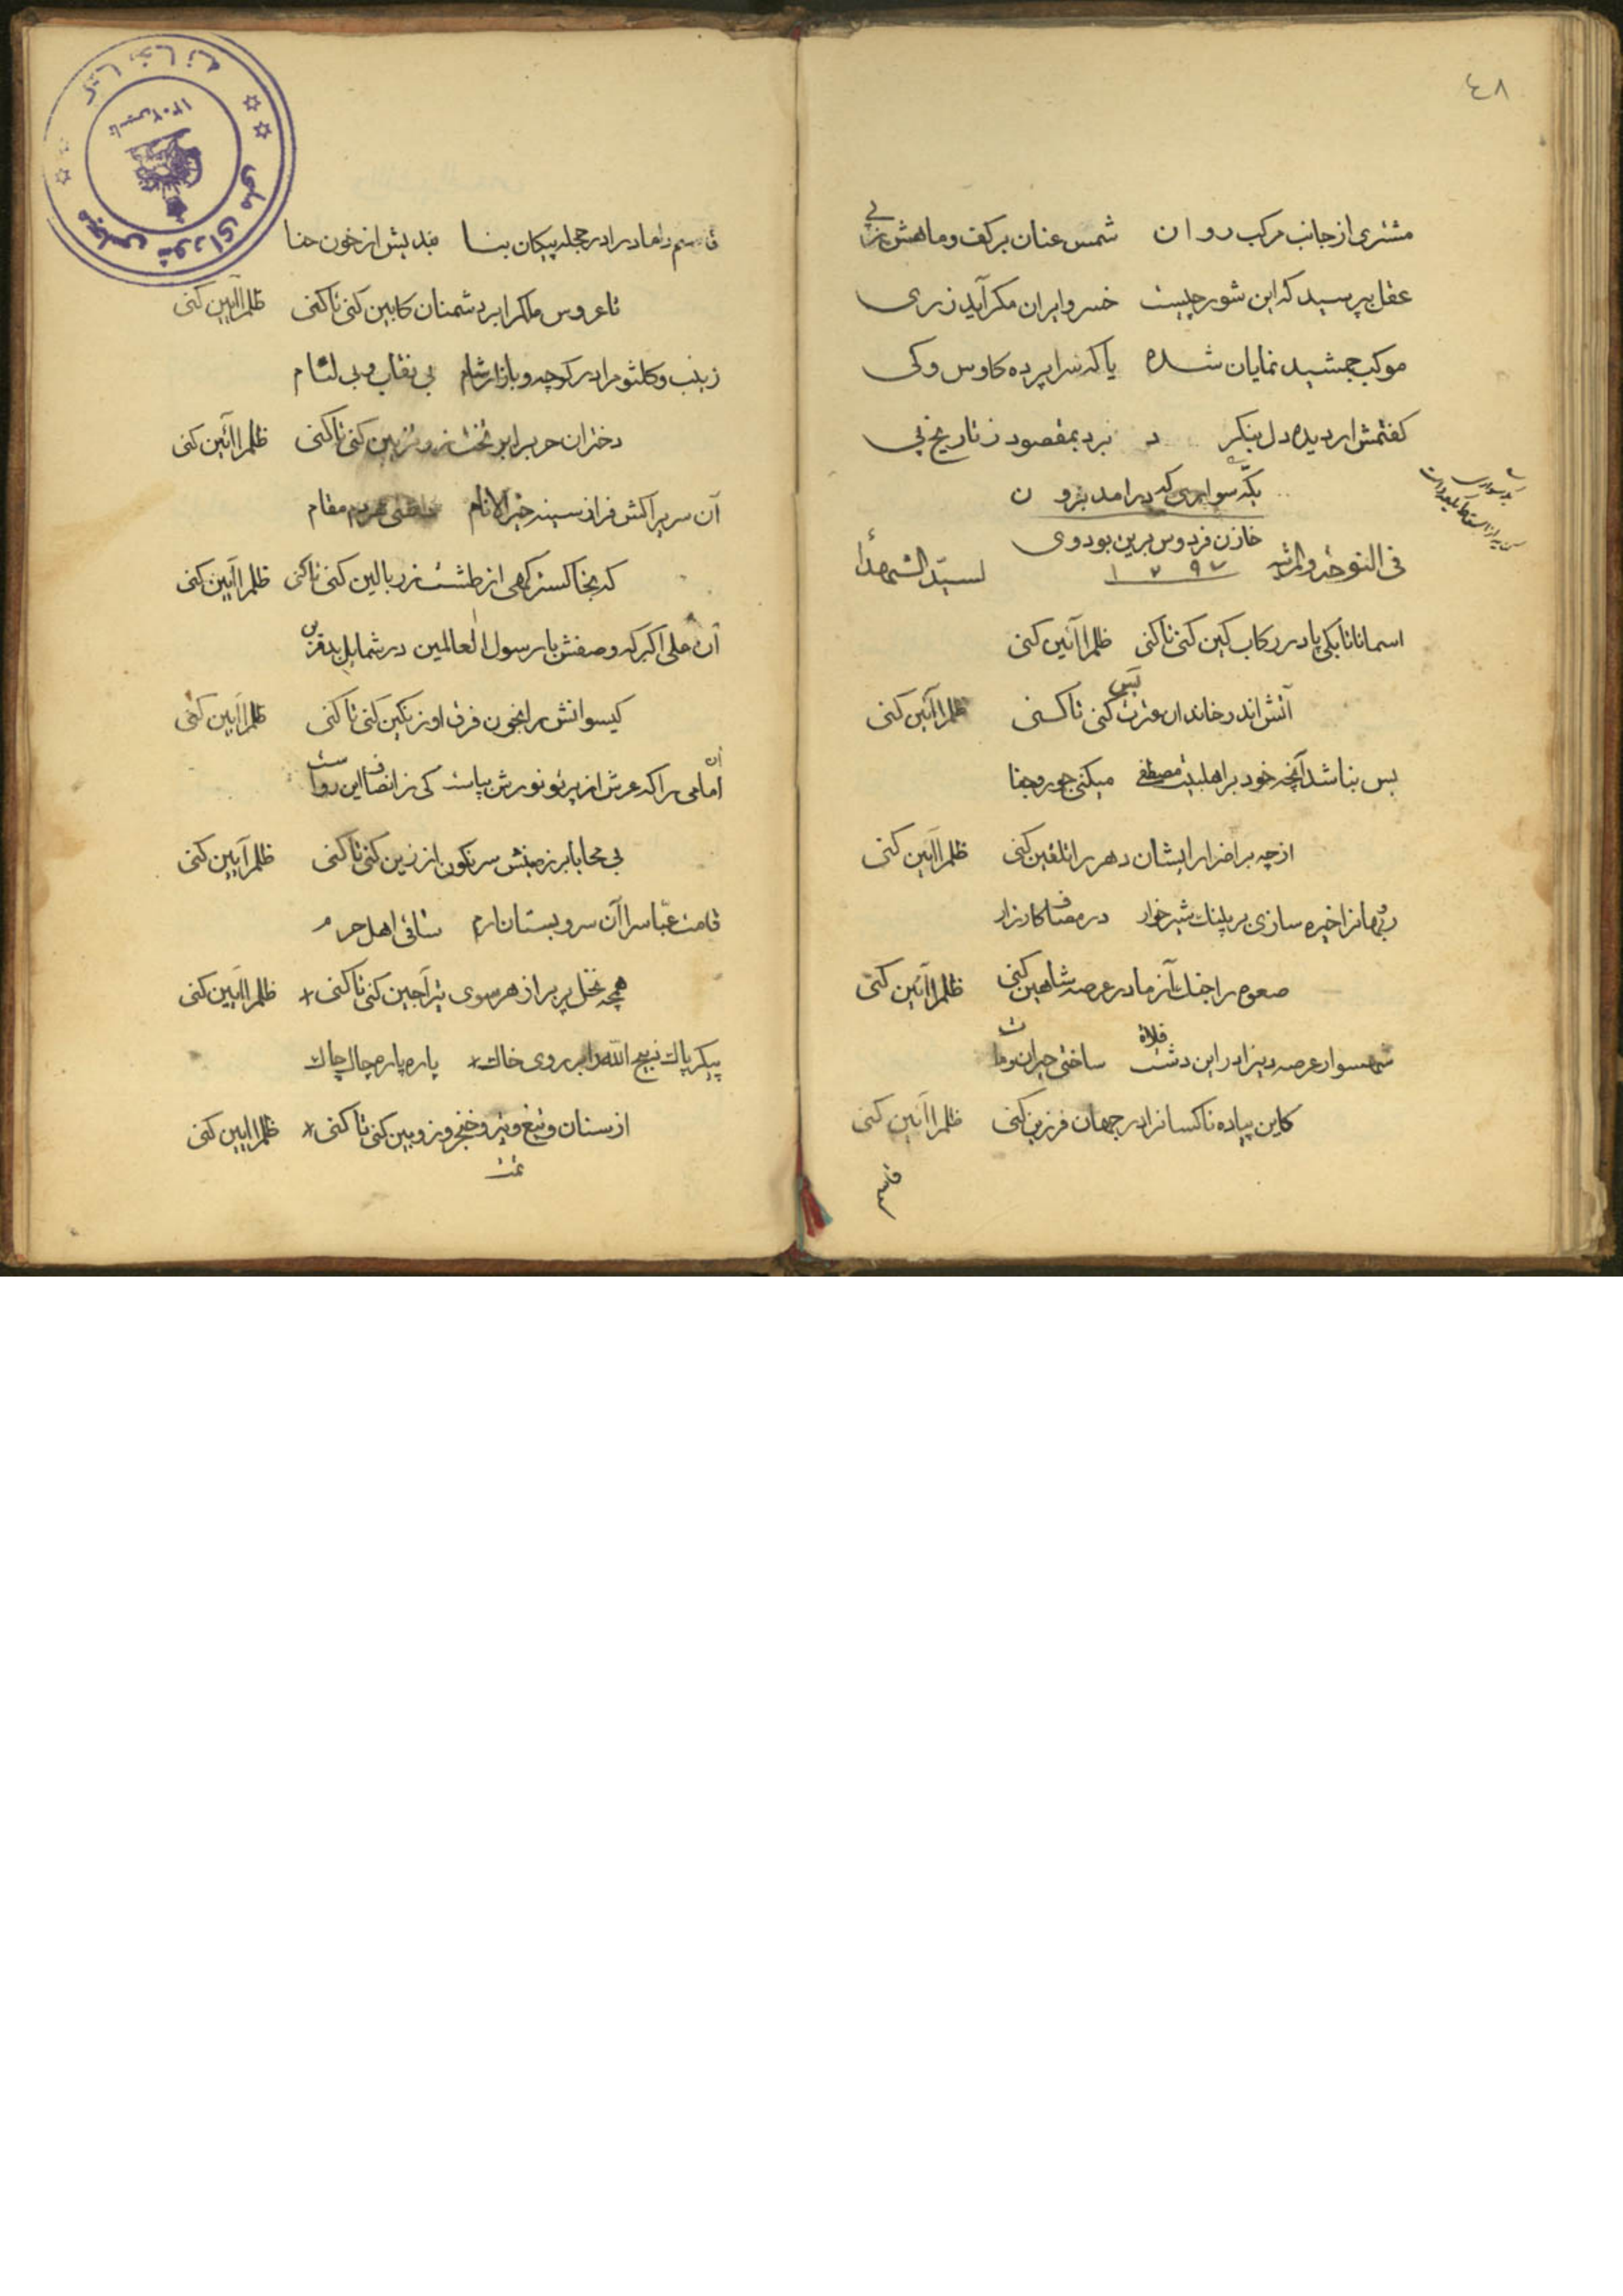 ٤٨
مشتری از جانب مرکب روان شمس عنان بر کف و ماهش ز پی
عقل بپرسید که این شور چیست خسرو ایران مکر آید ز ری
موکب جمشید نمایان شده یا که سراپرده کاوس و کی
کفتمش ار دیده دل بنکر د برد بمقصود ز تاریخ پی
یکه سواری که درامد برو ن
خازن فردوس برین بود وی
١٢٩٢
فی النوحه والمرثیه لسید الشهدأ
اسمانا تا بکی پا در رکاب کین کنی تا کنی ظلم را آئین کنی
آتش اندر خاندان عترت کنی تا کنی ظلم را آئین کنی
یس
بس نباشد آنچه خود بر اهلبیت مصطفی میکنی جور و جفا
از چه بر اضرار ایشان دهر را تلقین کنی ظلم را آئین کنی
خیره سازی بر پلنک شیرخوار در مصاف کارزار
صعوه را جنک آزما در عرصه شاهین کنی ظلم را آئین کنی
شهسوار عرصه دین را در این دشت فلاة ساختی حیران و مات
کاین پیاده ناکسانرا در جهان فرزین کنی ظلم را آئین کنی
قاسم
قاسم داماد را در حجله پیکان بنا بندیش از خون حنا
تا عروس ماکرا بر دشمنان کابین کنی تا کنی ظلم را آئین کنی
زینب و کلثوم را در کوچه و بازار شام بی نقاب و بی لثام
دختران حرب را بر تخت زر تزیین کنی تا کنی ظلم را آئین کنی
آن سریرا کش فراز سینه خیر الانام مقام
که بخاکستر کهی از طشت زر بالین کنی تا کنی ظلم را آئین کنی
آن علی اکبر که وصفش با رسول العالمین در شمایل بد قرین
کیسوانش را بخون فرق او رنکین کنی تا کنی ظلم را آئین کنی
آن امامی را که عرش از پرتو نورش بپاست کی ز انصاف این رواست
بی محابا بر زمینش سرنکون از زین کنی تا کنی ظلم را آیین کنی
قامت عباس را آن سرو بستان ارم ساقی اهل حرم
همچه نخل پر بر از هر سوی تیر آجین کنی تا کنی ظلم را آئین کنی
پیکر پاک ذبیح الله را بر روی خاک پاره پاره چاک چاک
از سنان و تیغ و تیر و خنجر و زوبین کنی تا کنی ظلم را ایین کنی
تمت
کتابخانه مجلس شورای ملی
تاسیس ١٣٠٢